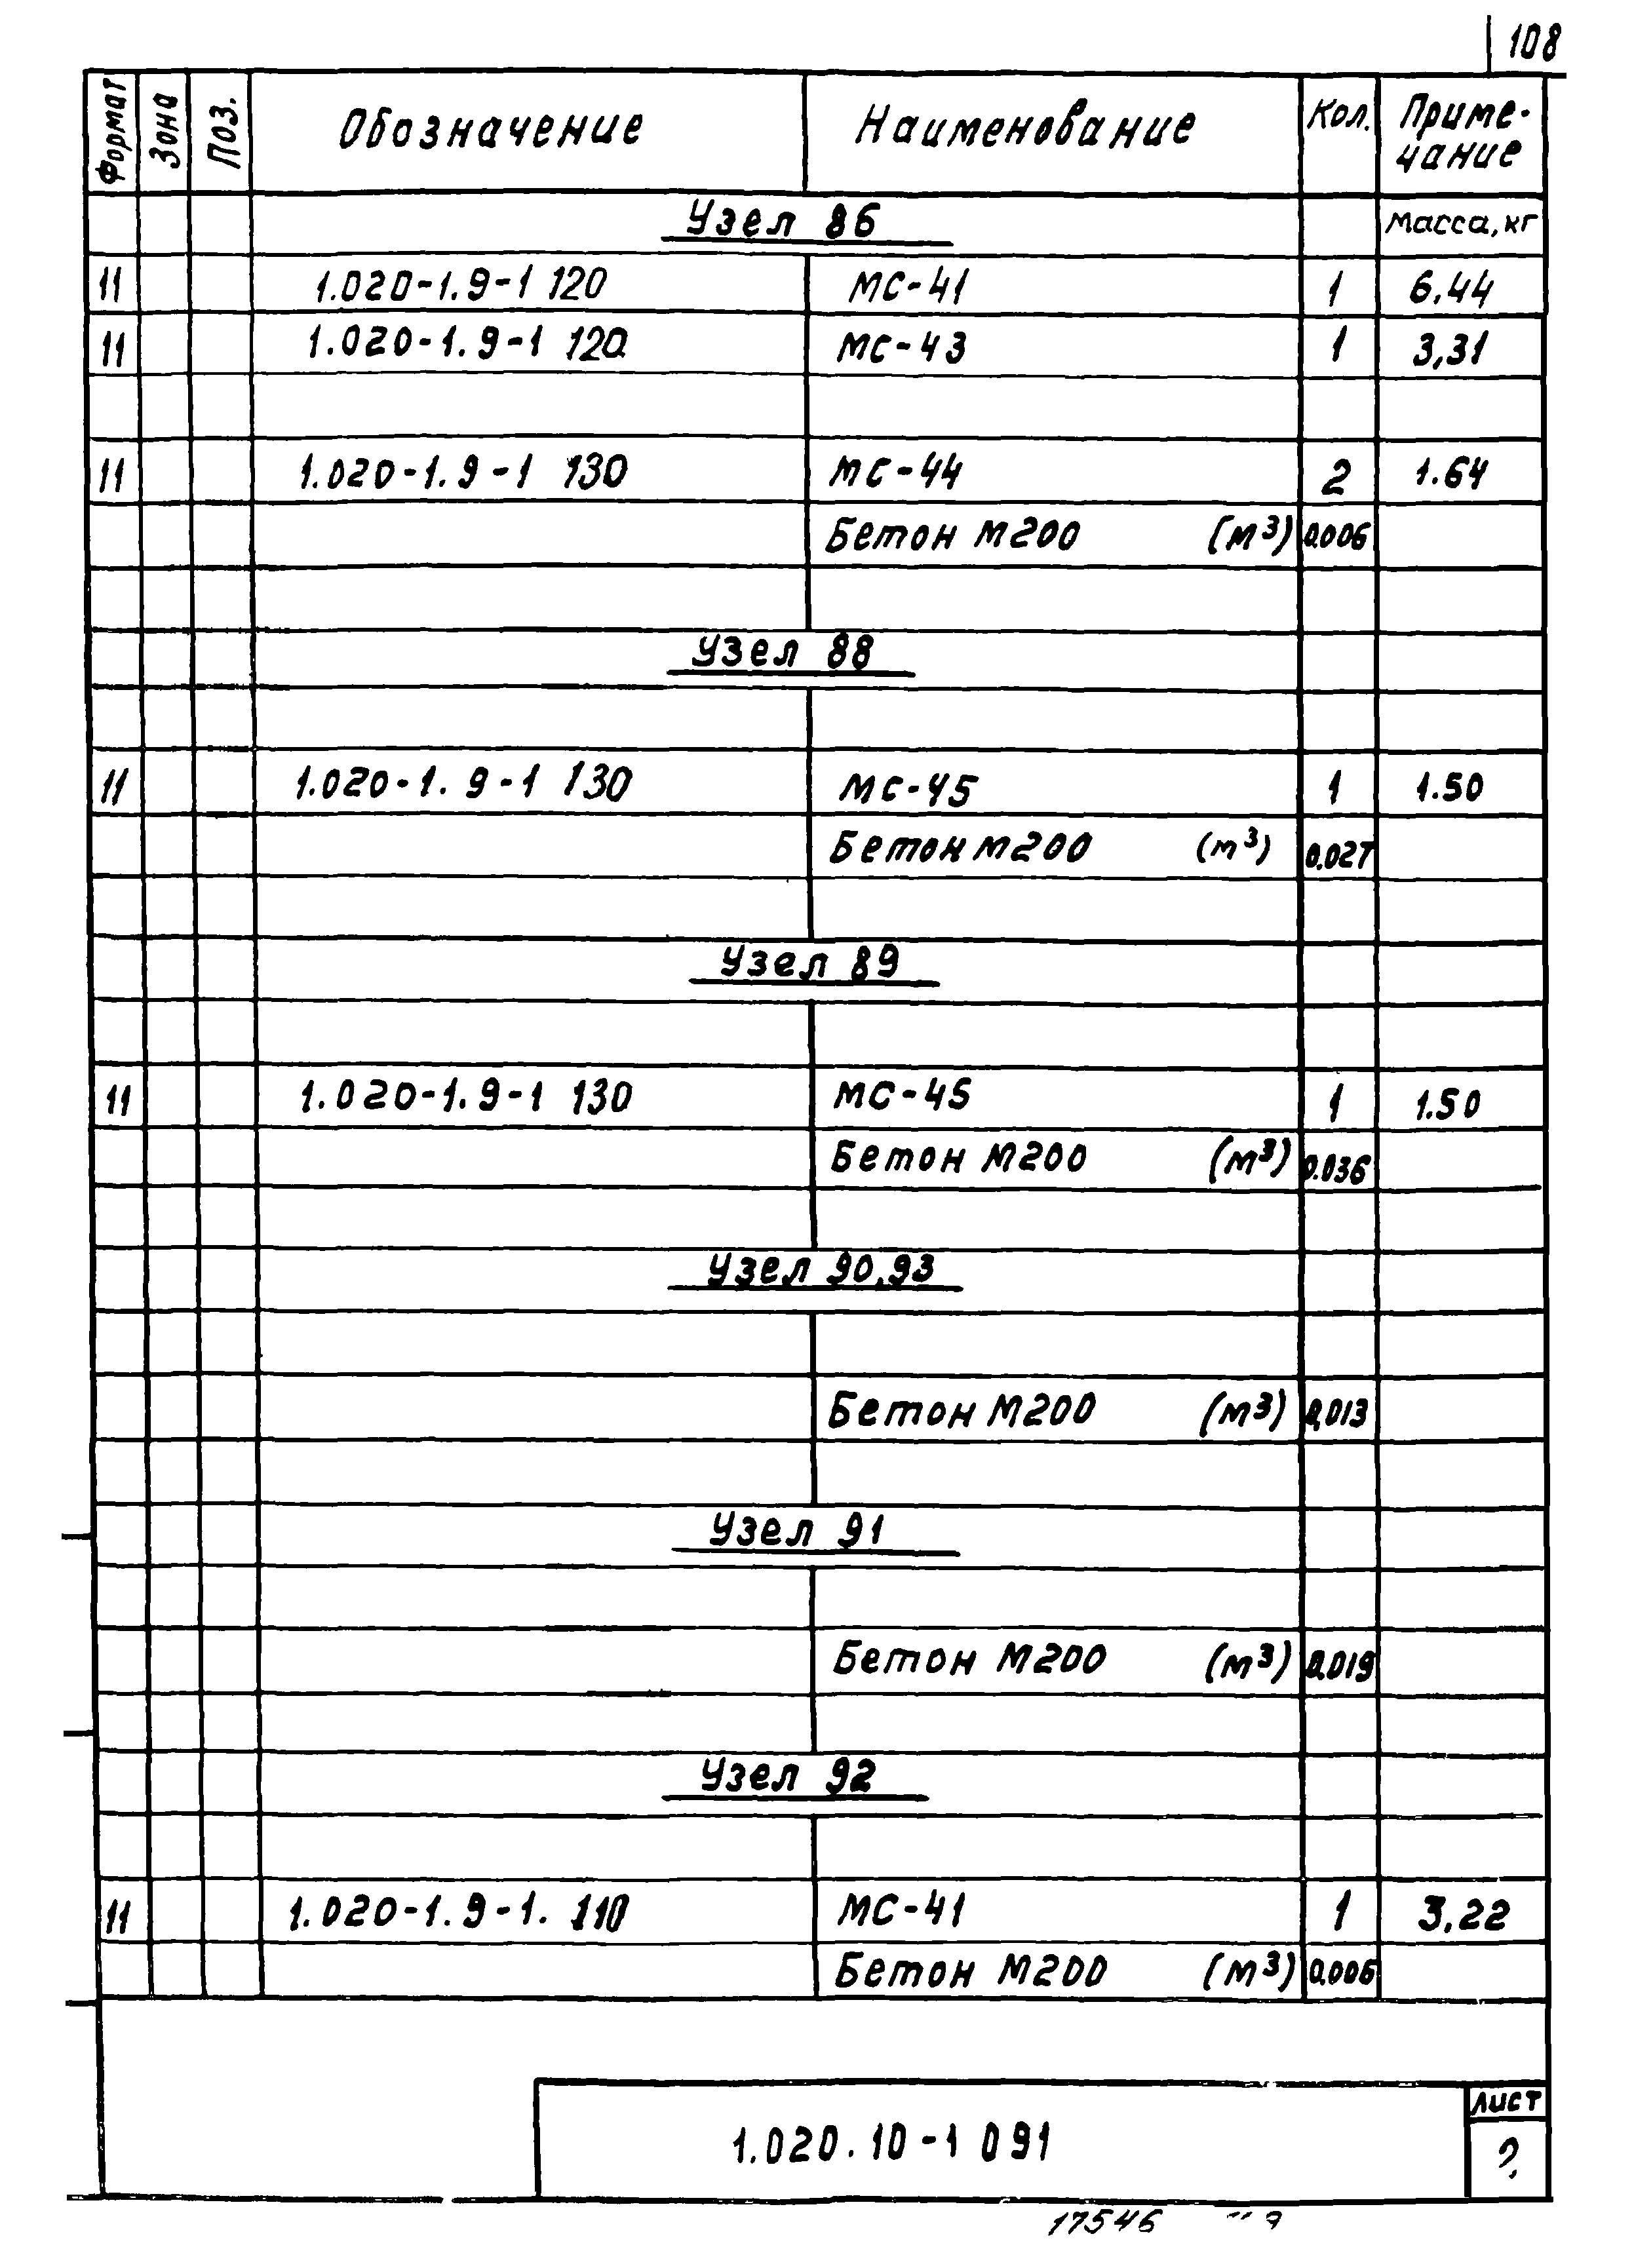 108
Формат Зона Поз. Обозначение Наименование Кол. Приме-
чание
Узел 86 Масса, кг
11 1.020-1.9-1 120 МС-41 1 6.44
11 1.020-1.9-1 120 МС-43 1 3,31
11 1.020-1.9-1 130 МС-44 2 1.64
Бетон М200 (м³) 0.006
Узел 88
11 1.020-1.9-1 130 МС-45 1 1.50
Бетон М200 (м³) 0.027
Узел 89
11 1.020-1.9-1 130 МС-45 1 1.50
Бетон М200 (м³) 0.036
Узел 90,93
Бетон М200 (м³) 0,013
Узел 91
Бетон М200 (м³) 0,019
Узел 92
11 1.020-1.9-1. 110 МС-41 1 3,22
Бетон М200 (м³) 0.006
1.020.10-1 091
Лист
2
17546